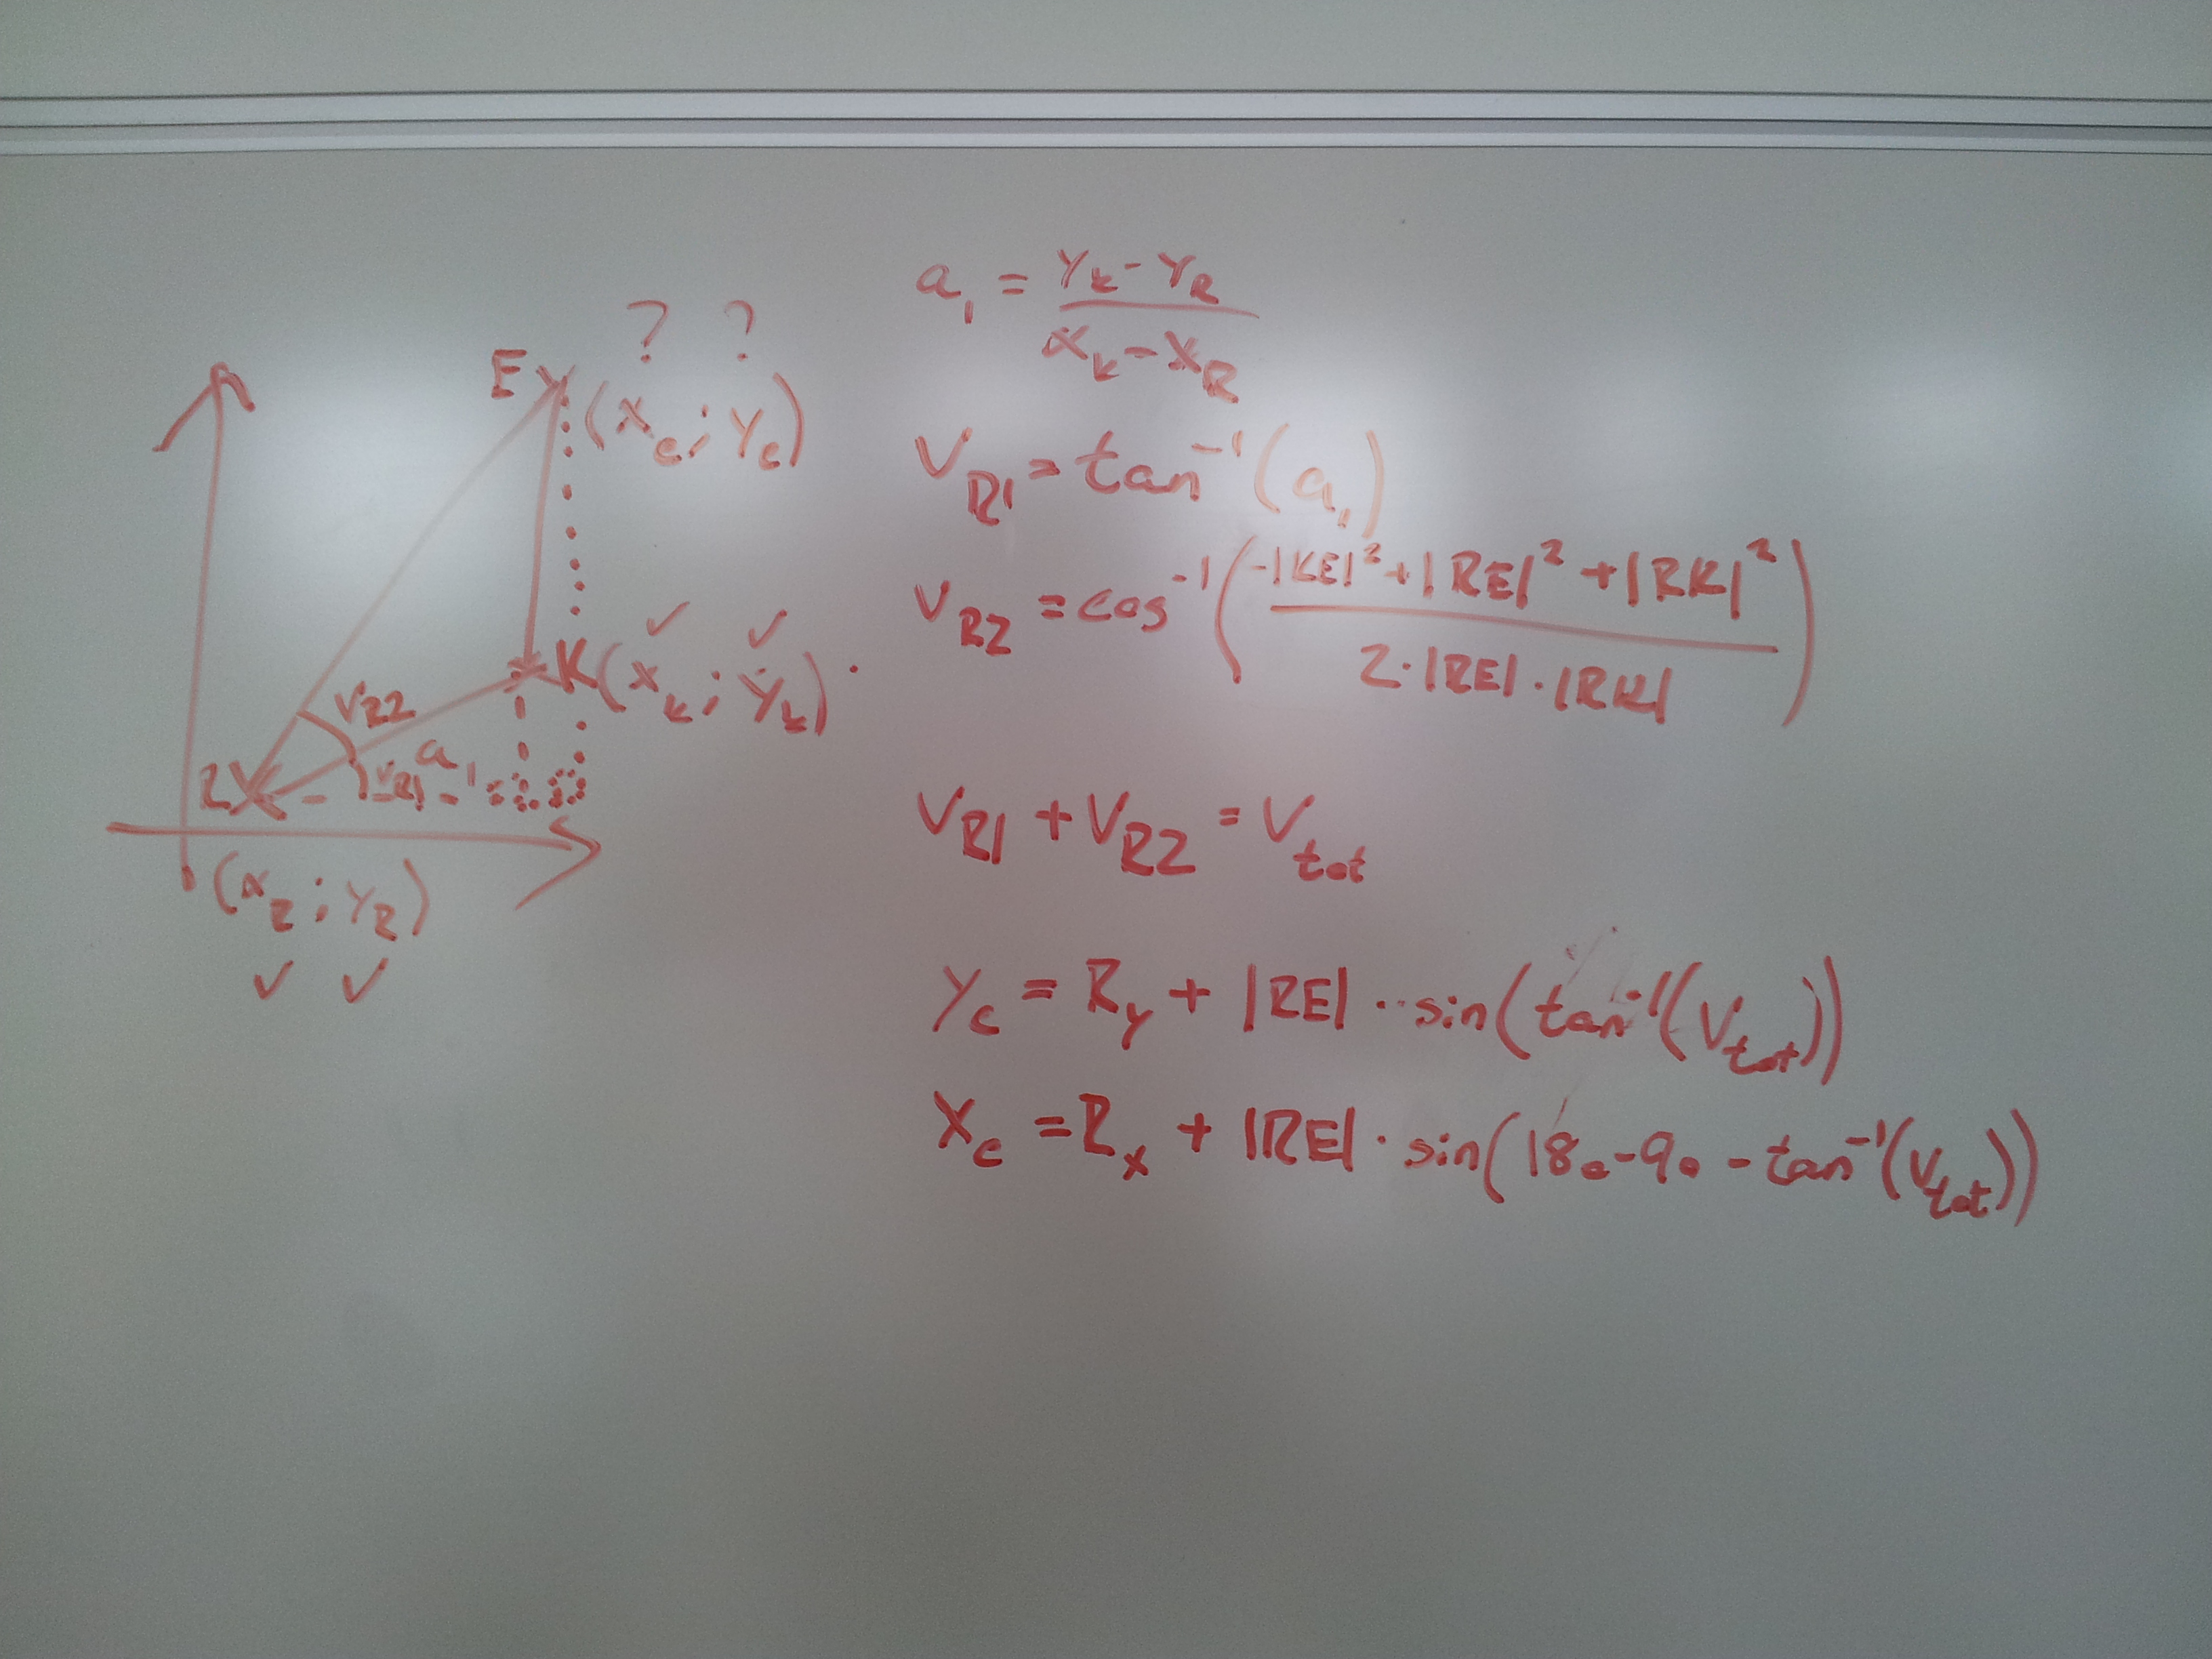 ? ?
E (x_e ; y_e)
✓ ✓
K (x_k ; y_k)
v_R2
a_1
v_R1
R
(x_R ; y_R)
✓ ✓
a_1 = (y_k - y_R) / (x_k - x_R)
v_R1 = tan^-1 (a_1)
v_R2 = cos^-1 ((-|KE|² + |RE|² + |RK|²) / (2 · |RE| · |RK|))
v_R1 + v_R2 = v_tot
y_e = R_y + |RE| · sin(tan^-1(v_tot))
x_e = R_x + |RE| · sin(180-90 - tan^-1(v_tot))